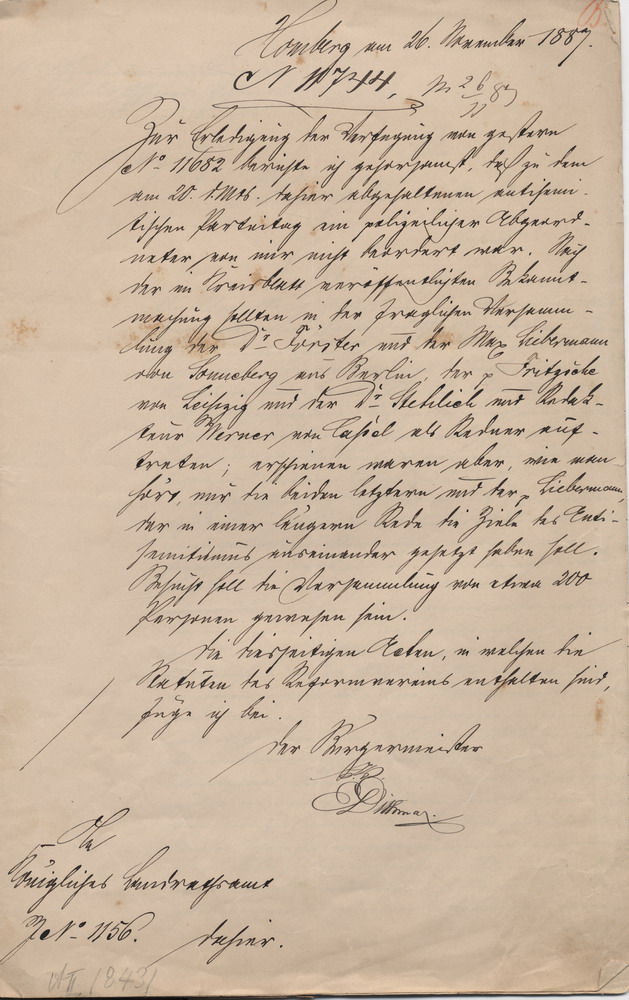 Homberg am 26. November 1887.
N 11744, 26/11 87
Zur Erledigung der Verfügung von gestern
No 11682 berichte ich gehorsamst, daß zu dem
am 20. d. Mts. dahier abgehaltenen antisemi-
tischen Parteitag ein polizeilicher Abgeord-
neter von mir nicht beordert war. Nach
der im Kreisblatt veröffentlichten Bekannt-
machung sollten in der fraglichen Versamm-
lung der Dr Förster und der Max Liebermann
von Sonneberg aus Berlin, der p Fritzsche
von Leipzig und der Dr Stehlich und Redak-
teur Werner von Cassel als Redner auf-
treten; erschienen waren aber, wie man
hört, nur die beiden letztern und der p Liebermann,
der in einer längern Rede die Ziele des Anti-
semitismus auseinander gesetzt haben soll.
Besucht soll die Versammlung von etwa 200
Personen gewesen sein.
Die diesseitigen Acten, in welchen die
Statuten des Reformvereins enthalten sind,
füge ich bei.
Der Bürgermeister
Dittmar.
An
Königliches Landrathsamt
J No 1156. dahier.